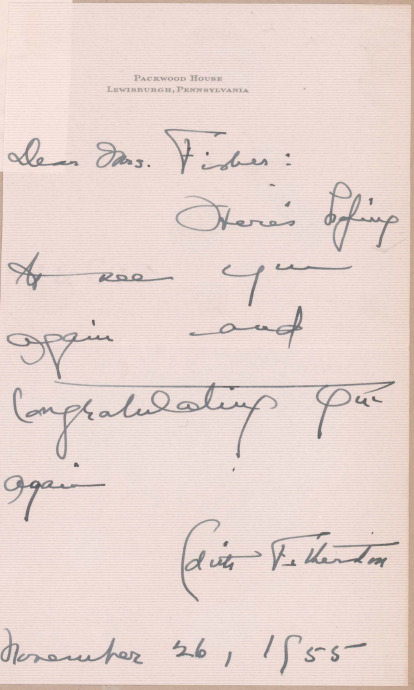 PACKWOOD HOUSE
LEWISBURGH, PENNSYLVANIA
Dear Mrs. Fisher:
Here's hoping
to see you
again and
Congratulating you
again
Edith Fetherston
November 26, 1955